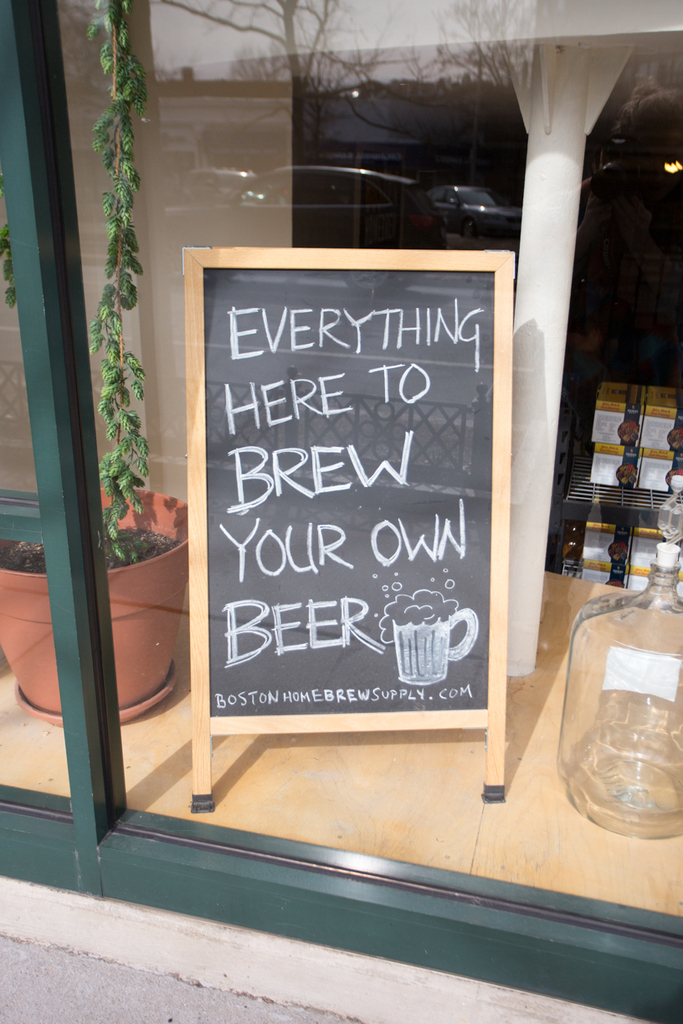 EVERYTHING
HERE TO
BREW
YOUR OWN
BEER
BOSTONHOMEBREWSUPPLY.COM